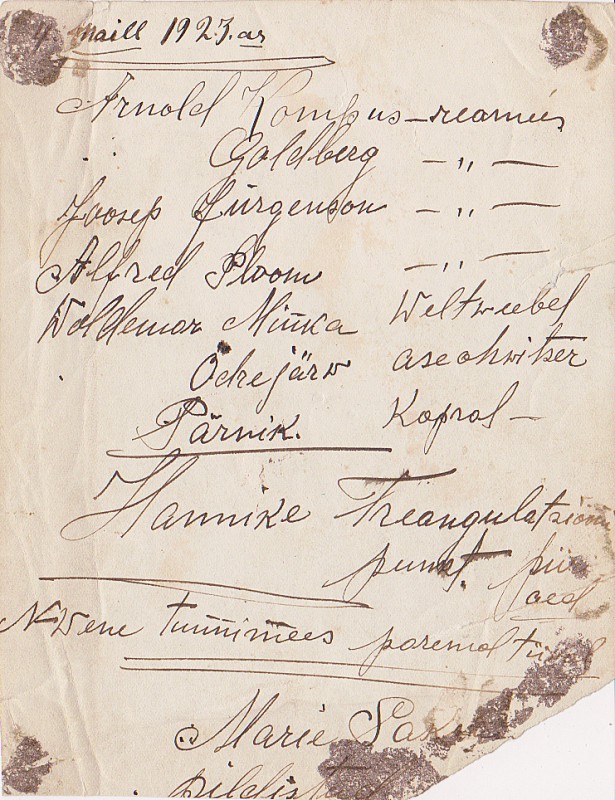 4. maill 1923. as
Arnold Kompus – reamees
Goldberg – „ –
Joosep Jürgenson – „ –
Alfred Ploom – „ –
Woldemar Minka Weltweebel
Odrejärw aseohwitser
Pärnik. Kaprol –
Hannike Treangulatsiooni
punkt.
aed
N-Wene tunnimees paremal
Marie
pildis